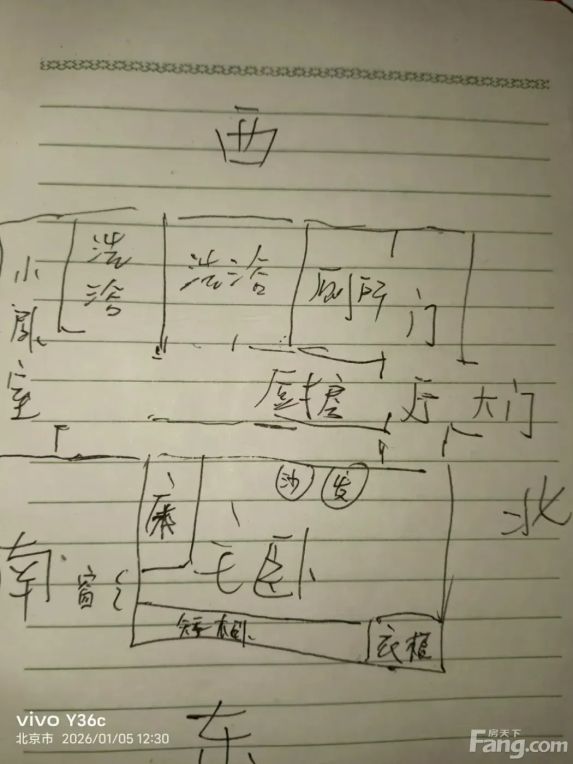 西
小
浩
浴
浩浴
厕所
门
室
厅
大门
沙
发
床
主卧
北
南
窗
衣柜
东
vivo Y36c
北京市 2026/01/05 12:30
房天下
Fang.com